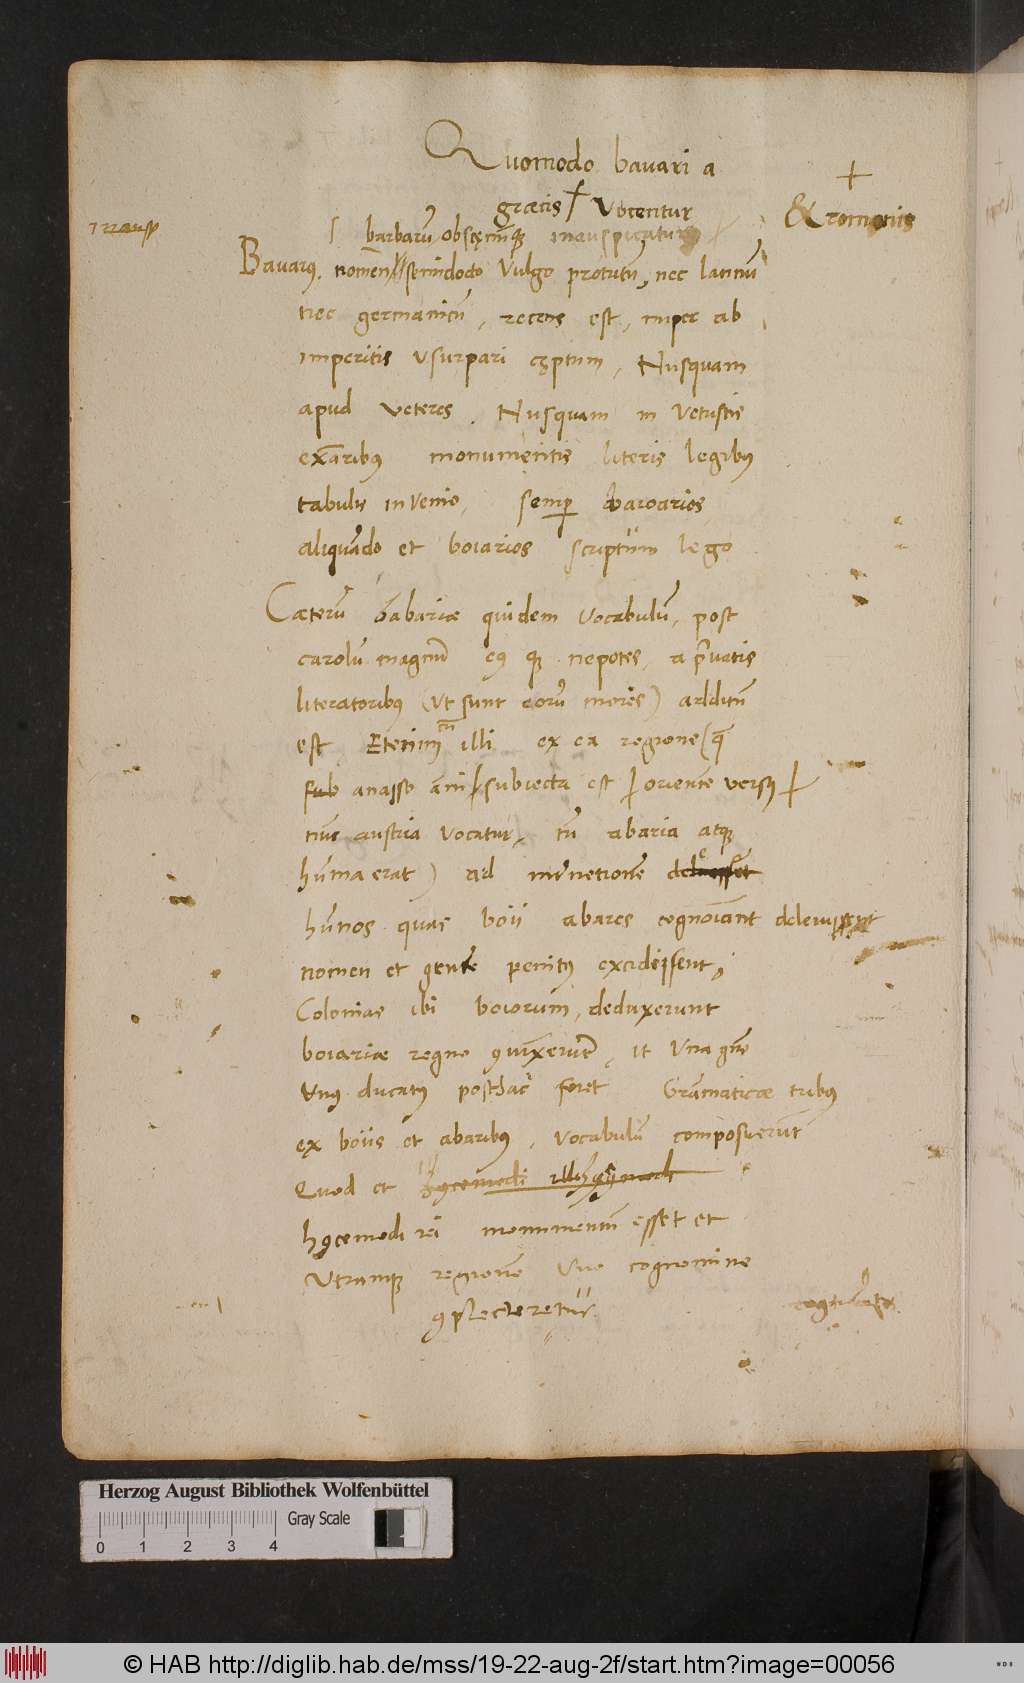 Quomodo bavari a
græcis † Vocentur
+
& romanis
barbarū obscęnūq̨ inauspicatum
Bavarꝰ nomen semidocto Vulgo protritū, nec latinū
nec germanicū, recens est, nuper ab
imperitis Vsurpari cęptum, Nusquam
apud veteres. Nusquam in Vetustis
exāribꝰ monumentis literis legibꝰ
tabulis invenio, semp̱
aliquādo et boiarios scriptum lego
Cæterū babariæ quidem Vocabulū, post
carolū magnū eꝰ q̨ nepotes, a p̄vatis
literatoribꝰ (Vt sunt eorū mores)
est Etenim cū illi ex ea regione (q̄
sub anasso amī subiecta est orientē versꝰ
nūc austria Vocatur, tū abaria atq̨
hūnia erat) ad internetionē
hūnos quas boii abares cognoiānt delevissent
nomen et gentē penitꝰ excidissent,
Colonias ibi boiorum, deduxerunt
boiariæ regno ꝯiūxerūt, Vt Vna gēs
Vnꝰ ducatꝰ posthac foret Gramaticæ tribus
ex boiis et abaribꝰ, Vocabulū composuerūt
Quod et
hꝰcemodi rei monimentū esset et
Vtramq̨ regionē Vno cognomine
ꝯplecteretur
Herzog August Bibliothek Wolfenbüttel
Gray Scale
0 1 2 3 4
© HAB http://diglib.hab.de/mss/19-22-aug-2f/start.htm?image=00056